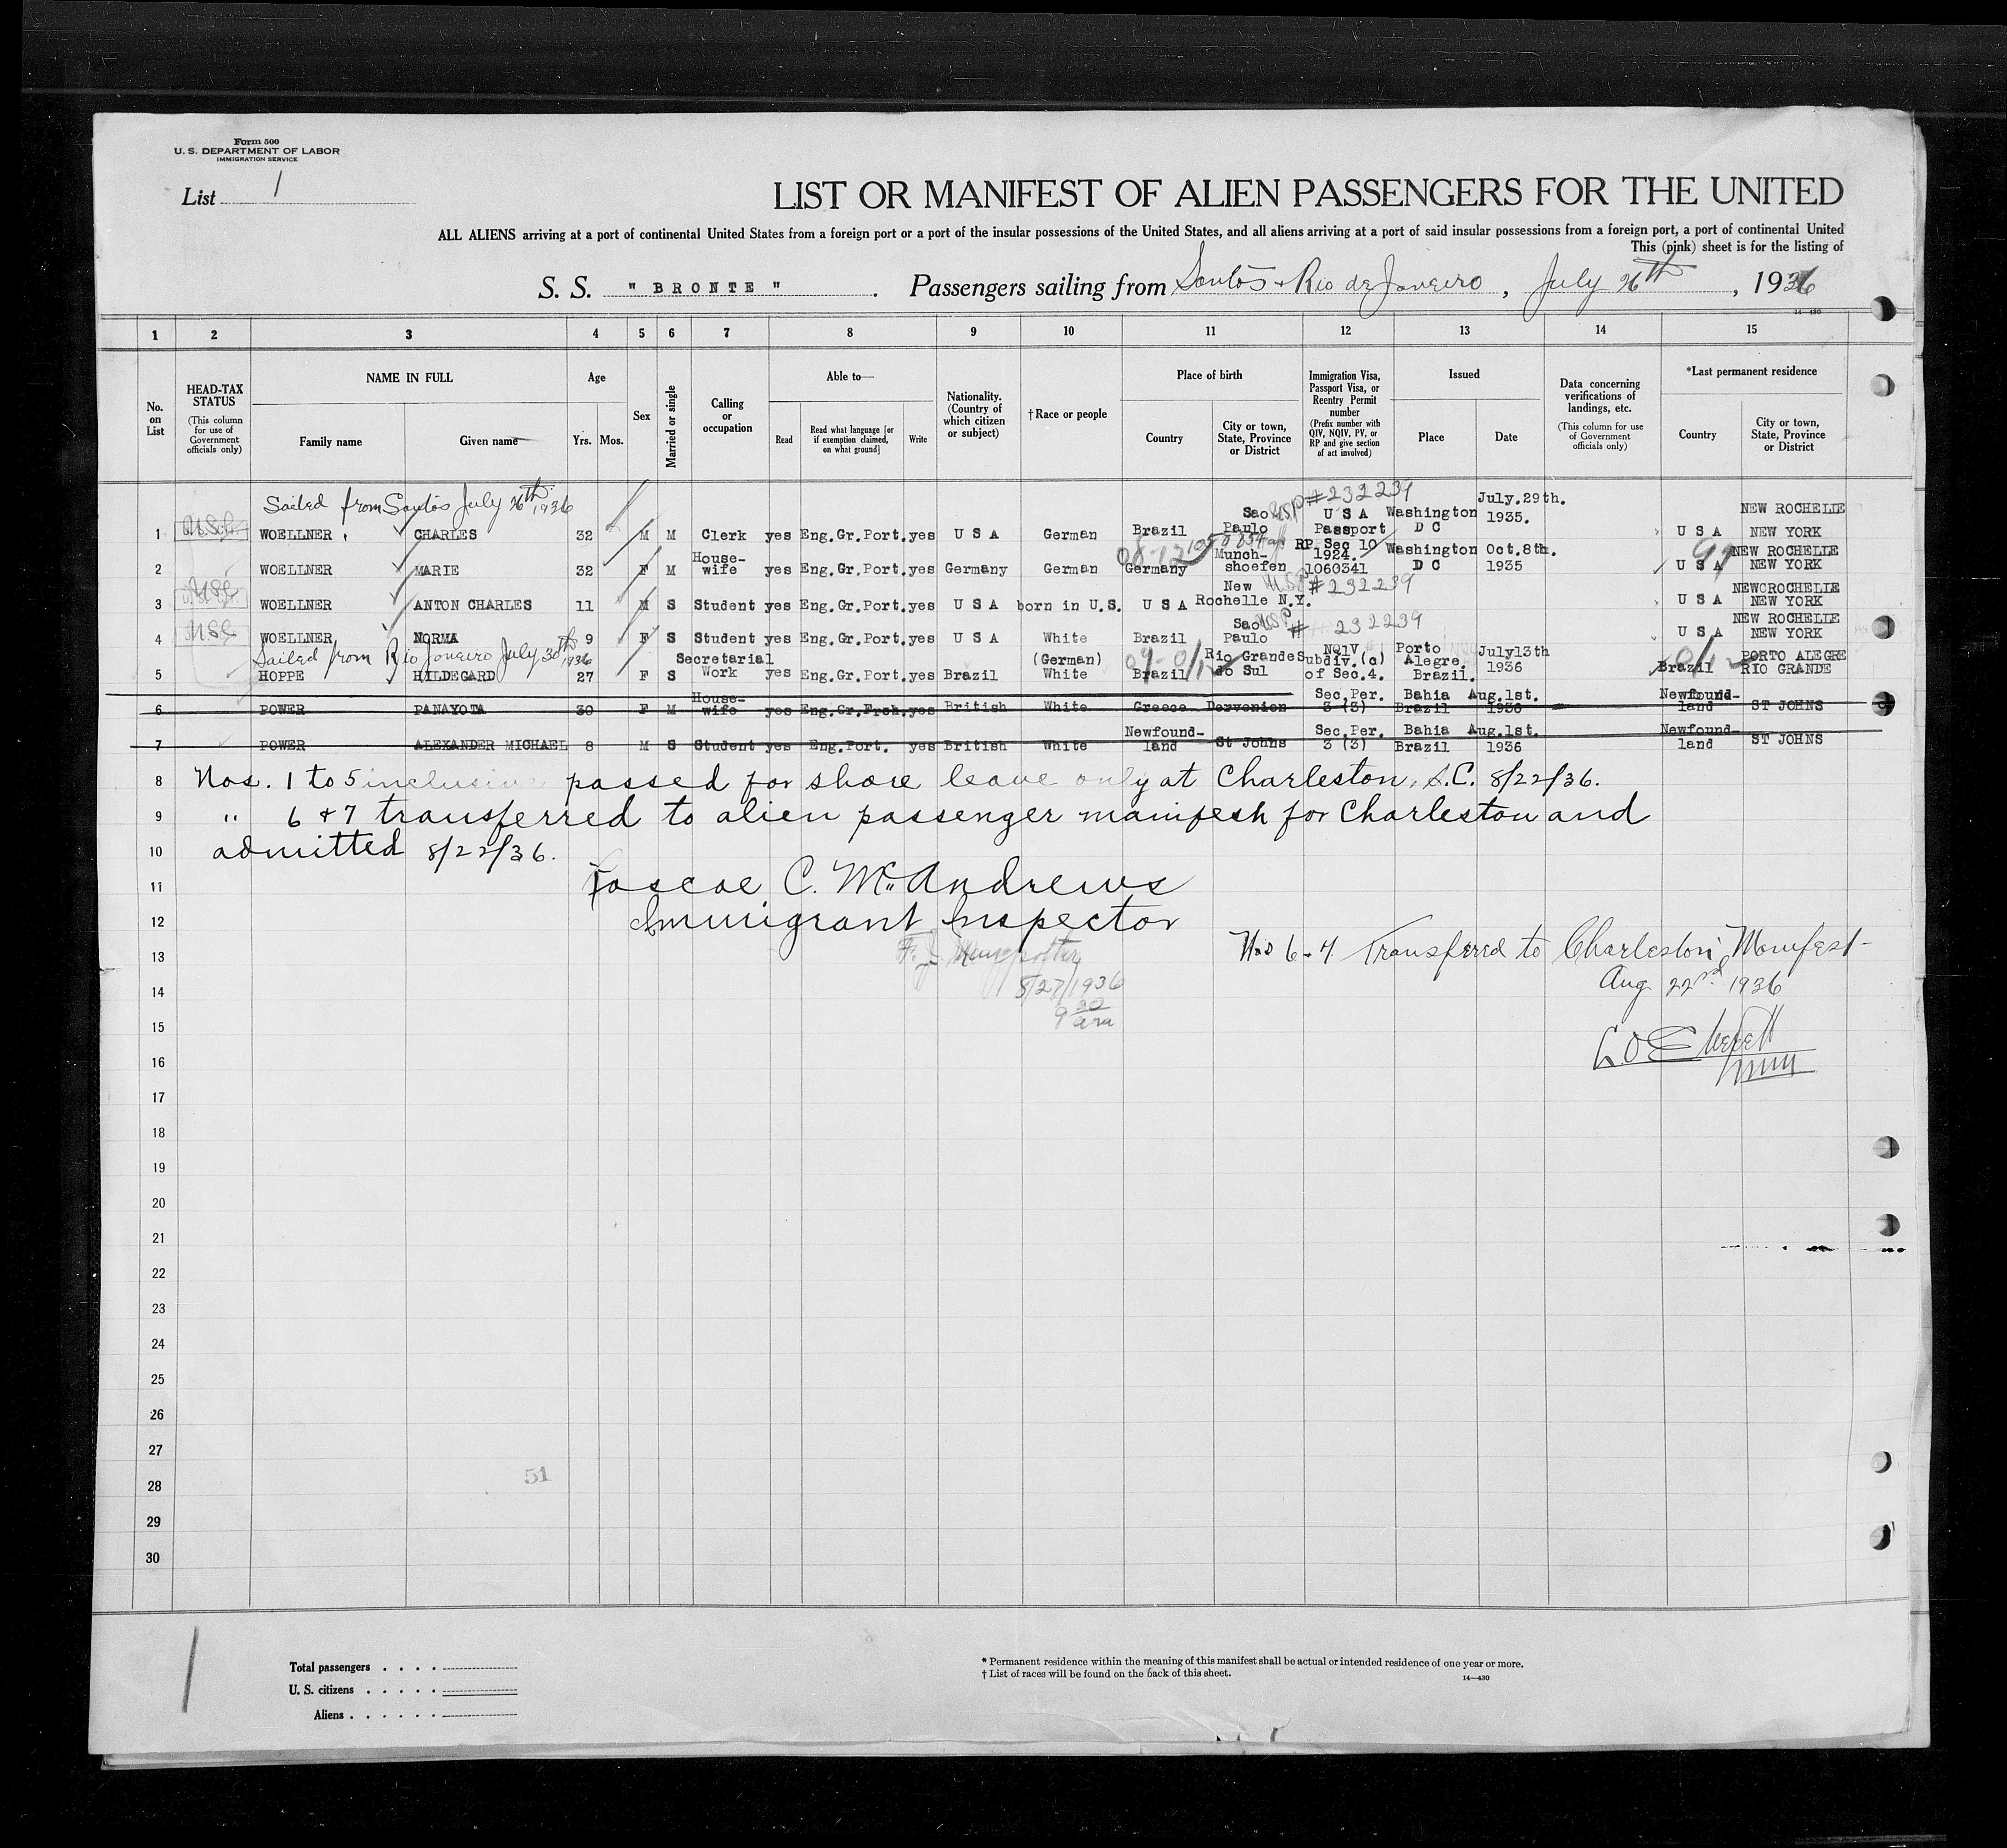 Form 500
U. S. DEPARTMENT OF LABOR
IMMIGRATION SERVICE
List 1
LIST OR MANIFEST OF ALIEN PASSENGERS FOR THE UNITED
ALL ALIENS arriving at a port of continental United States from a foreign port or a port of the insular possessions of the United States, and all aliens arriving at a port of said insular possessions from a foreign port, a port of continental United
This (pink) sheet is for the listing of
S. S. " BRONTE " . Passengers sailing from Santos & Rio de Janeiro , July 26th , 1936
14—430
1 2 3 4 5 6 7 8 9 10 11 12 13 14 15
No. on List
HEAD-TAX STATUS
(This column for use of Government officials only)
NAME IN FULL
Family name
Given name
Age
Yrs. Mos.
Sex
Married or single
Calling or occupation
Able to—
Read
Read what language [or if exemption claimed, on what ground]
Write
Nationality. (Country of which citizen or subject)
†Race or people
Place of birth
Country
City or town, State, Province or District
Immigration Visa, Passport Visa, or Reentry Permit number
(Prefix number with QIV, NQIV, PV, or RP and give section of act involved)
Issued
Place
Date
Data concerning verifications of landings, etc.
(This column for use of Government officials only)
*Last permanent residence
Country
City or town, State, Province or District
Sailed from Santos July 26th 1936
1 USC WOELLNER CHARLES 32 M M Clerk yes Eng.Gr.Port. yes U S A German Brazil Sao Paulo USP #232239 U S A Passport Washington D C July.29th. 1935. U S A NEW ROCHELLE NEW YORK
2 WOELLNER MARIE 32 F M House-wife yes Eng.Gr.Port. yes Germany German Germany Munch-shoefen RP Sec 10 1924. 1060341 Washington D C Oct.8th. 1935 U S A NEW ROCHELLE NEW YORK
3 USC WOELLNER ANTON CHARLES 11 M S Student yes Eng.Gr.Port. yes U S A born in U.S. U S A New Rochelle N.Y. USP #232239 U S A NEWCROCHELLE NEW YORK
4 USC WOELLNER NORMA 9 F S Student yes Eng.Gr.Port. yes U S A White Brazil Sao Paulo USP # 232239 U S A NEW ROCHELLE NEW YORK
Sailed from Rio Janeiro July 30th 1936
5 HOPPE HILDEGARD 27 F S Secretarial Work yes Eng.Gr.Port. yes Brazil (German) White Brazil Rio Grande do Sul NQ1V Subdiv.(c) of Sec.4. Porto Alegre. Brazil. July13th 1936 Brazil PORTO ALEGRE RIO GRANDE
6 POWER PANAYOTA 30 F M House-wife yes Eng.Gr.Frch. yes British White Greece Dervenion Sec.Per. 3 (3) Bahia Brazil Aug.1st. 1936 Newfound-land ST JOHNS
7 POWER ALEXANDER MICHAEL 8 M S Student yes Eng.Port. yes British White Newfound-land St Johns Sec.Per. 3 (3) Bahia Brazil Aug.1st. 1936 Newfound-land ST JOHNS
8 Nos. 1 to 5 inclusive passed for shore leave only at Charleston, S.C. 8/22/36.
9 " 6 & 7 transferred to alien passenger manifest for Charleston and
10 admitted 8/22/36.
11 Roscoe C. McAndrews
12 Immigrant Inspector
Nos 6-7 Transferred to Charleston Manifest-
13
Aug 22nd 1936
14 8/27/1936
15 9 30 am
16
17
18
19
20
21
22
23
24
25
26
27
51
28
29
30
1
Total passengers . . . .
U. S. citizens . . . . .
Aliens . . . . . .
* Permanent residence within the meaning of this manifest shall be actual or intended residence of one year or more.
† List of races will be found on the back of this sheet.
14—430